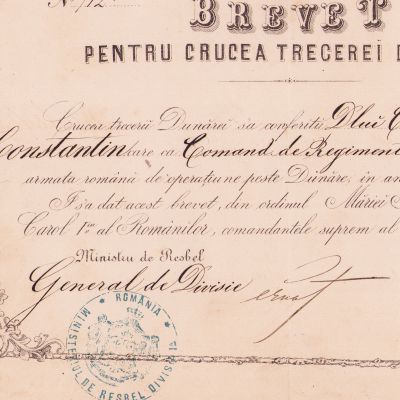 No 712
BREVET
PENTRU CRUCEA TRECEREI D
Crucea trecerii Dunărei s'a conferitŭ Dlui C
Constantin care ca Comand. de Regiment
armata română de operațiune peste Dunăre, in an
I s'a dat acest brevet, din ordinul Măriei
Carol Iiu al Românilor, comandantele suprem al
Ministru de Resbel
General de Divisie
ROMÂNIA
MINISTERUL DE RESBEL DIVISIA